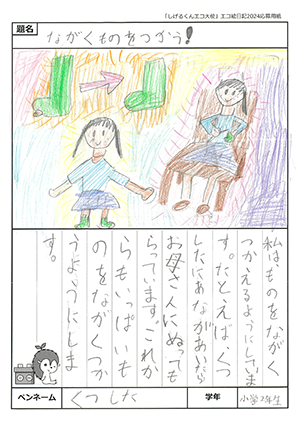 「しげるくんエコ大使」エコ絵日記2024応募用紙
題名
ながくものをつかう!
私は、ものをながく
つかえるようにしていま
す。たとえば、くつ
したにあながあいたら
お母さんにぬっても
らっています。これか
らもいっぱいも
のをながくつか
うようにしま
す。
ペンネーム くつした 学年 小学2年生